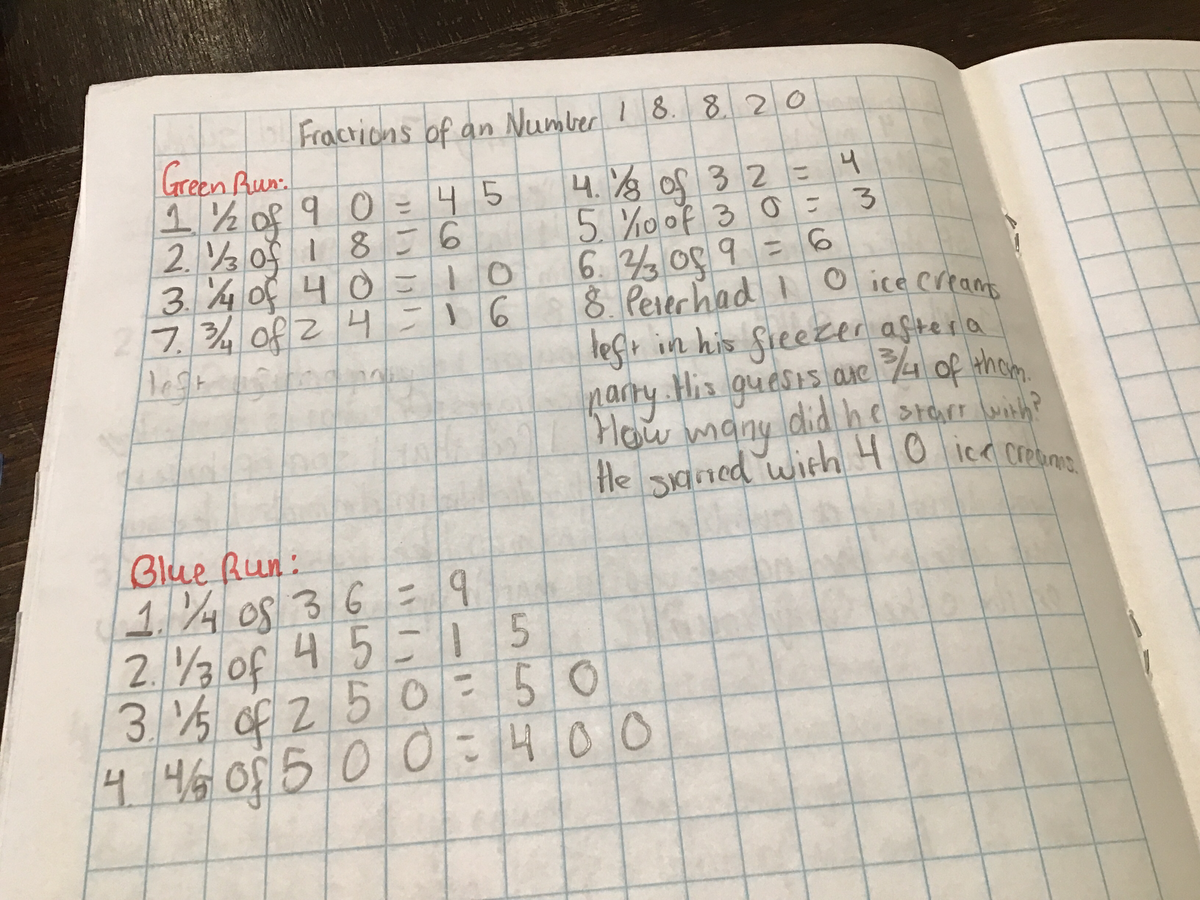 Fractions of an Number 18.8.20
Green Run:
1. 1/2 of 90 = 45
2. 1/3 of 18 = 6
3. 1/4 of 40 = 10
7. 3/4 of 24 = 16
left
4. 1/8 of 32 = 4
5. 1/10 of 30 = 3
6. 2/3 of 9 = 6
8. Peter had 10 ice creams
left in his freezer after a
party. His guests ate 3/4 of them.
How many did he start with?
He started with 40 ice creams.
Blue Run:
1. 1/4 of 36 = 9
2. 1/3 of 45 = 15
3. 1/5 of 250 = 50
4. 4/5 of 500 = 400